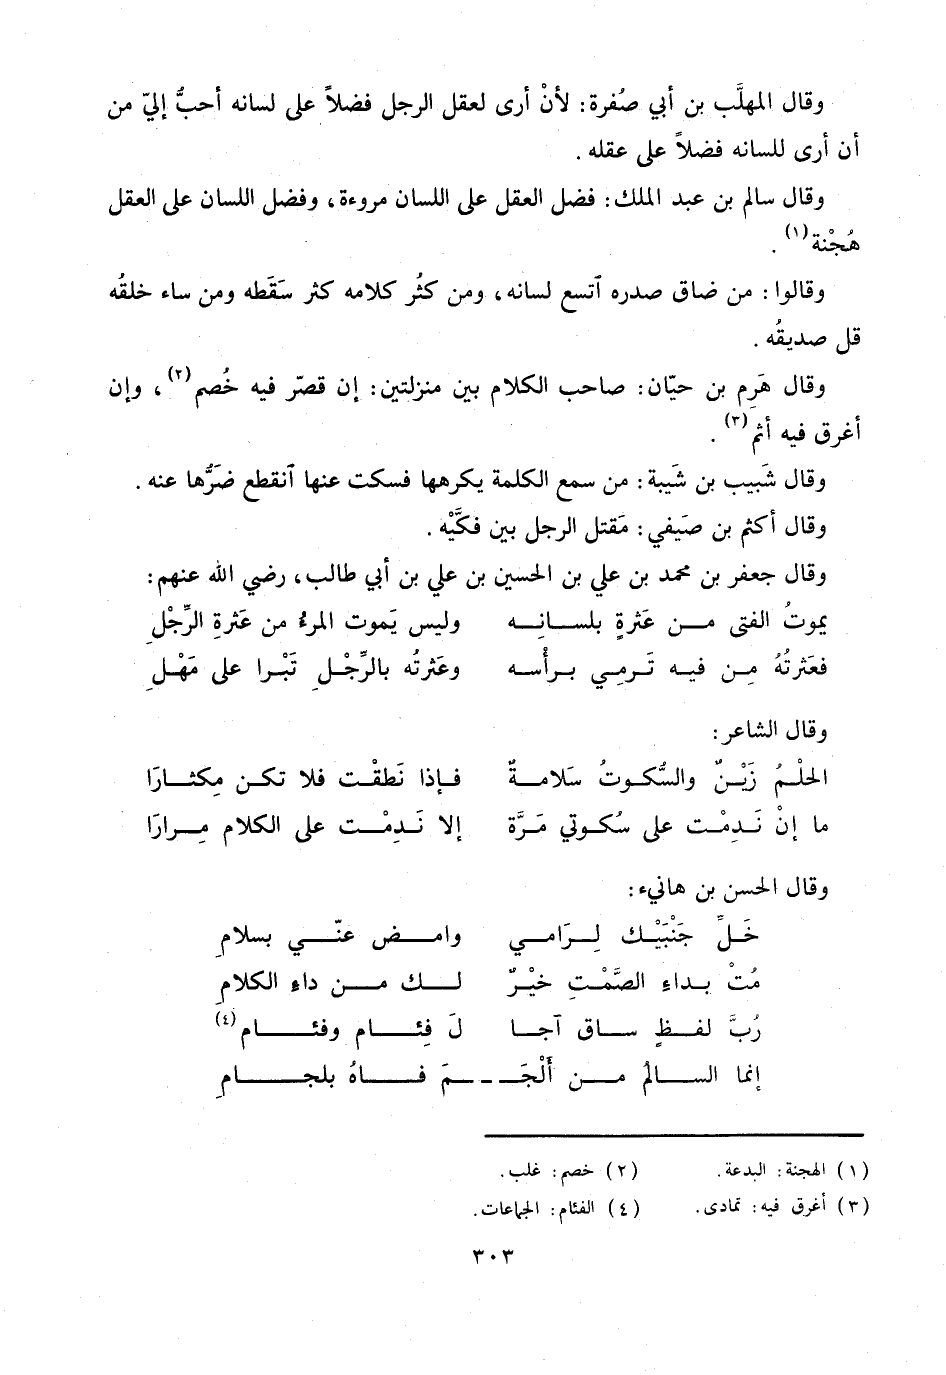 وقال المهلَّب بن أبي صُفرة: لأنْ أرى لعقل الرجل فضلاً على لسانه أحبُّ إليّ من
أن أرى للسانه فضلاً على عقله .
وقال سالم بن عبد الملك: فضل العقل على اللسان مروءة، وفضل اللسان على العقل
هُجْنة(١) .
وقالوا: من ضاق صدره ٱتسع لسانه، ومن كثُر كلامه كثر سَقَطه ومن ساء خلقُه
قل صديقُه .
وقال هَرِم بن حيّان: صاحب الكلام بين منزلتين: إن قصّر فيه خُصم(٢)، وإن
أغرق فيه أثم(٣) .
وقال شَبيب بن شَيبة: من سمع الكلمة يكرهها فسكت عنها ٱنقطع ضَرُّها عنه .
وقال أكثم بن صَيفي: مَقتل الرجل بين فكَّيْه .
وقال جعفر بن محمد بن علي بن الحسين بن علي بن أبي طالب، رضي الله عنهم:
يموتُ الفتى مـن عَثرةٍ بلسـانِـه وليس يَموت المرءُ من عَثرةِ الرِّجْلِ
فعَثرتُهُ مِـن فيـه تَـرمِـي بـرأْسه وعَثرتُه بالرِّجْـلِ تَبْـرا على مَهْـلِ
وقال الشاعر:
الحلْـمُ زَيْـنٌ والسُّكـوتُ سَلامـةٌ فـإذا نَطقْـت فلا تكـن مِكثـارَا
ما إنْ نَـدِمْـت على سُكـوتي مَـرَّة إلا نَـدِمْـت على الكلام مِـرارَا
وقال الحسن بن هانيء:
خَـلِّ جَنْبَيْـك لِـرَامـي وامـض عنّـي بسلامِ
مُتْ بـداء الصَّمْـتِ خيْـرٌ لـك مـن داء الكلامِ
رُبَّ لفـظٍ سـاق آجـا لَ فِئـام وفئـام(٤)
إنما السـالمُ مـن أَلْجَـمَ فـاهُ بلجـامِ
(١) الهجنة: البدعة. (٢) خصم: غلب.
(٣) أغرق فيه: تمادى. (٤) الفئام: الجماعات.
٣٠٣